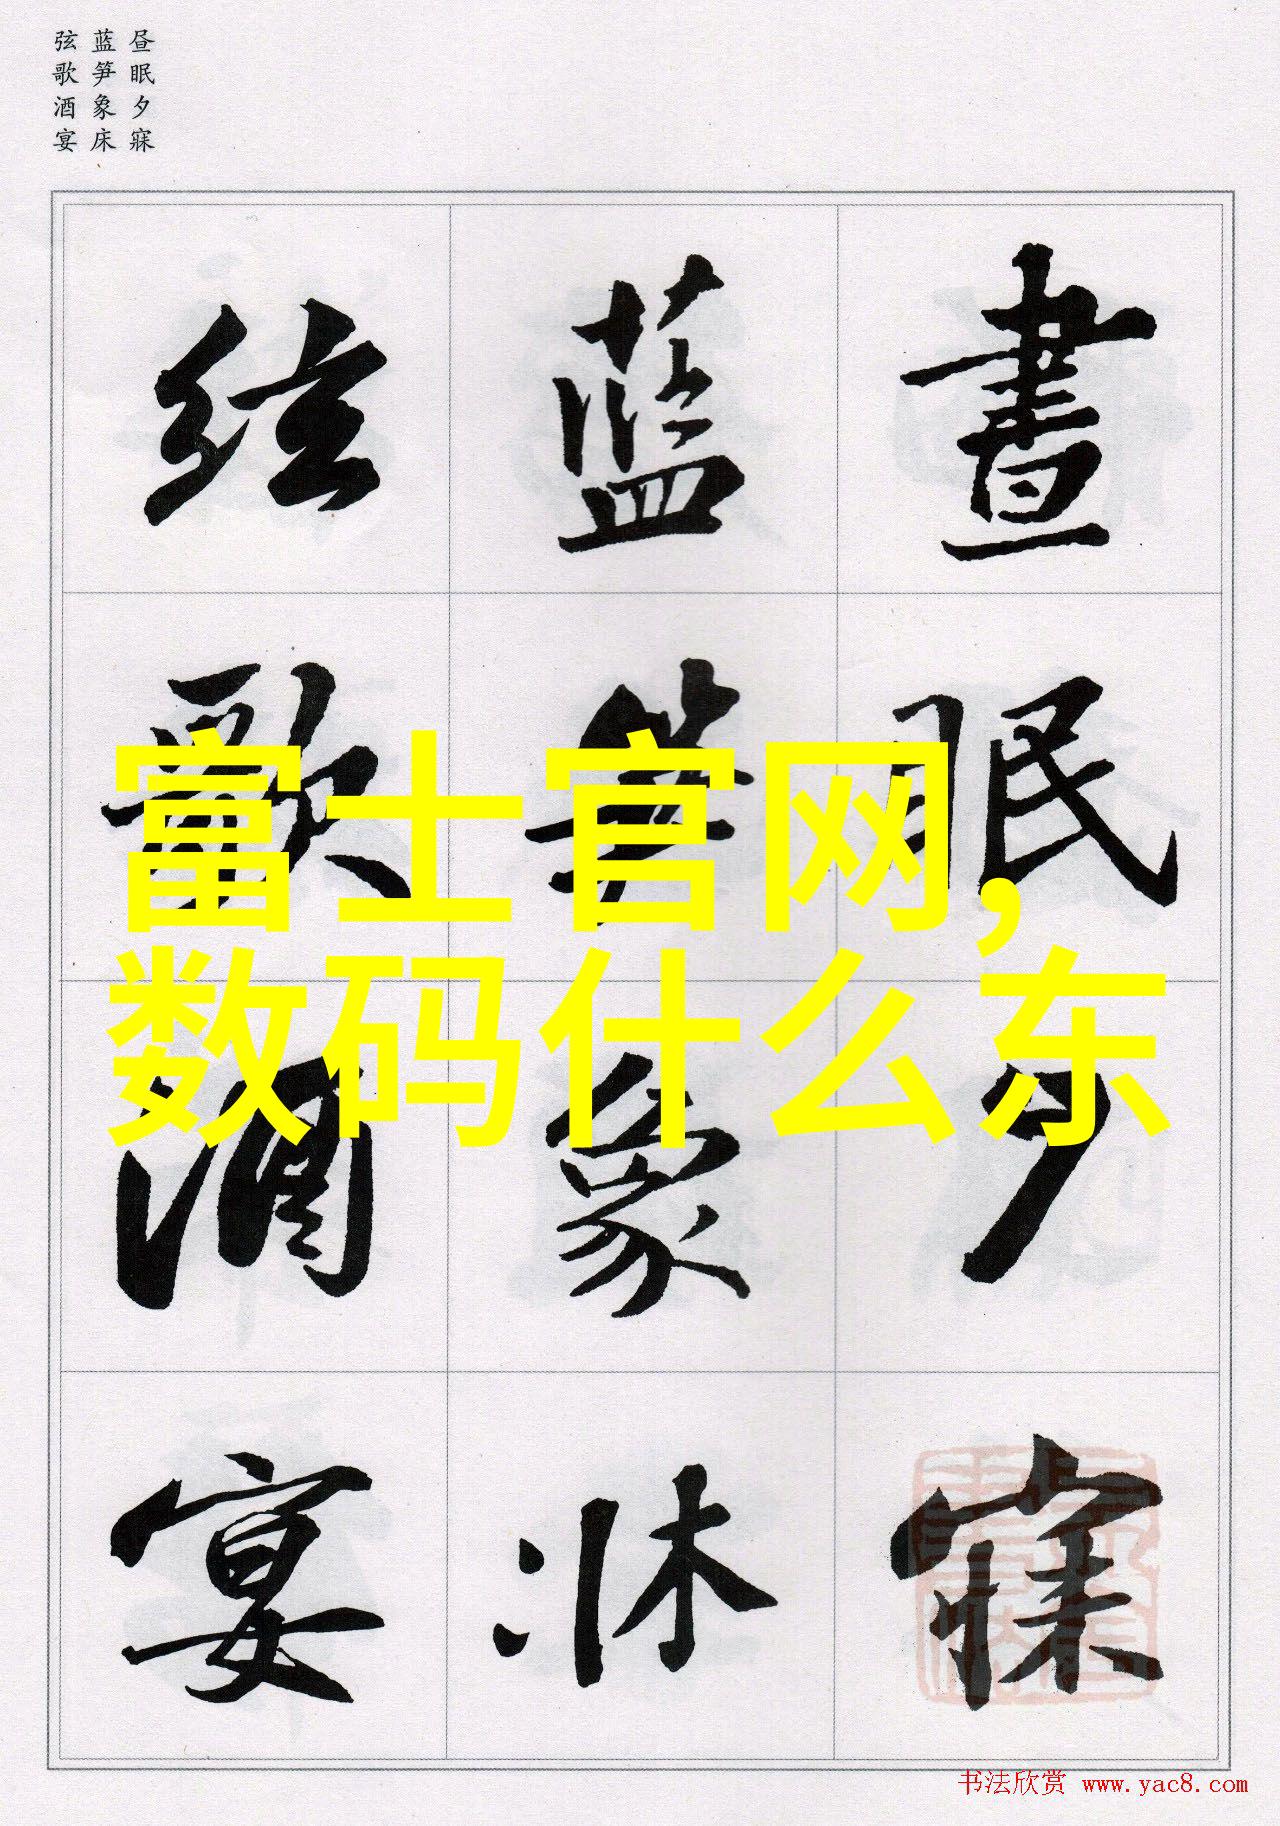 昼眠夕寐
蓝笋象床
弦歌酒宴
晝眠夕寐
蓝笋象床
弦歌酒宴
富士官网,
数码什么东
书法欣赏 www.yac8.com